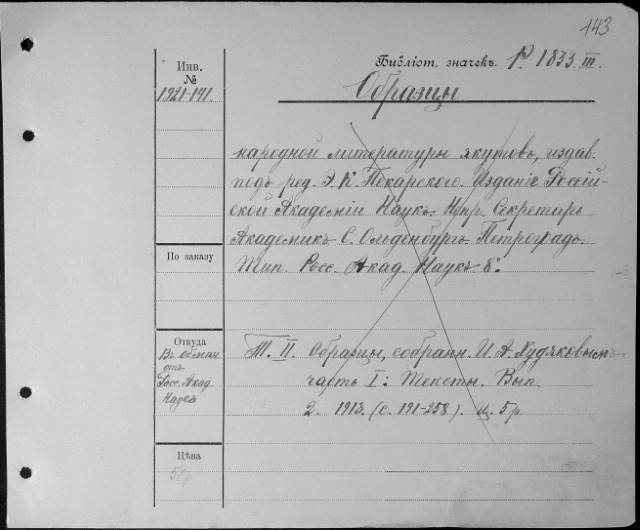 143
Инв.
№
1921-141.
Библіот. значекъ. P. 1833. III.
Образцы
народной литературы якутовъ, издав.
подъ ред. Э. К. Пекарского. Изданіе Россій-
ской Академіи Наукъ. Непр. Секретарь
Академикъ С. Ольденбургъ. Петроградъ.
Тип. Росс. Акад. Наукъ. 8°.
По заказу
Откуда
Въ обмѣн
отъ
Росс. Акад.
Наукъ
Т. II. Образцы, собранн. И. А. Худяковымъ
часть I: Тексты. Вып.
2. 1913. (с. 191-258). Ц. 5 р.
Цѣна
5 р.